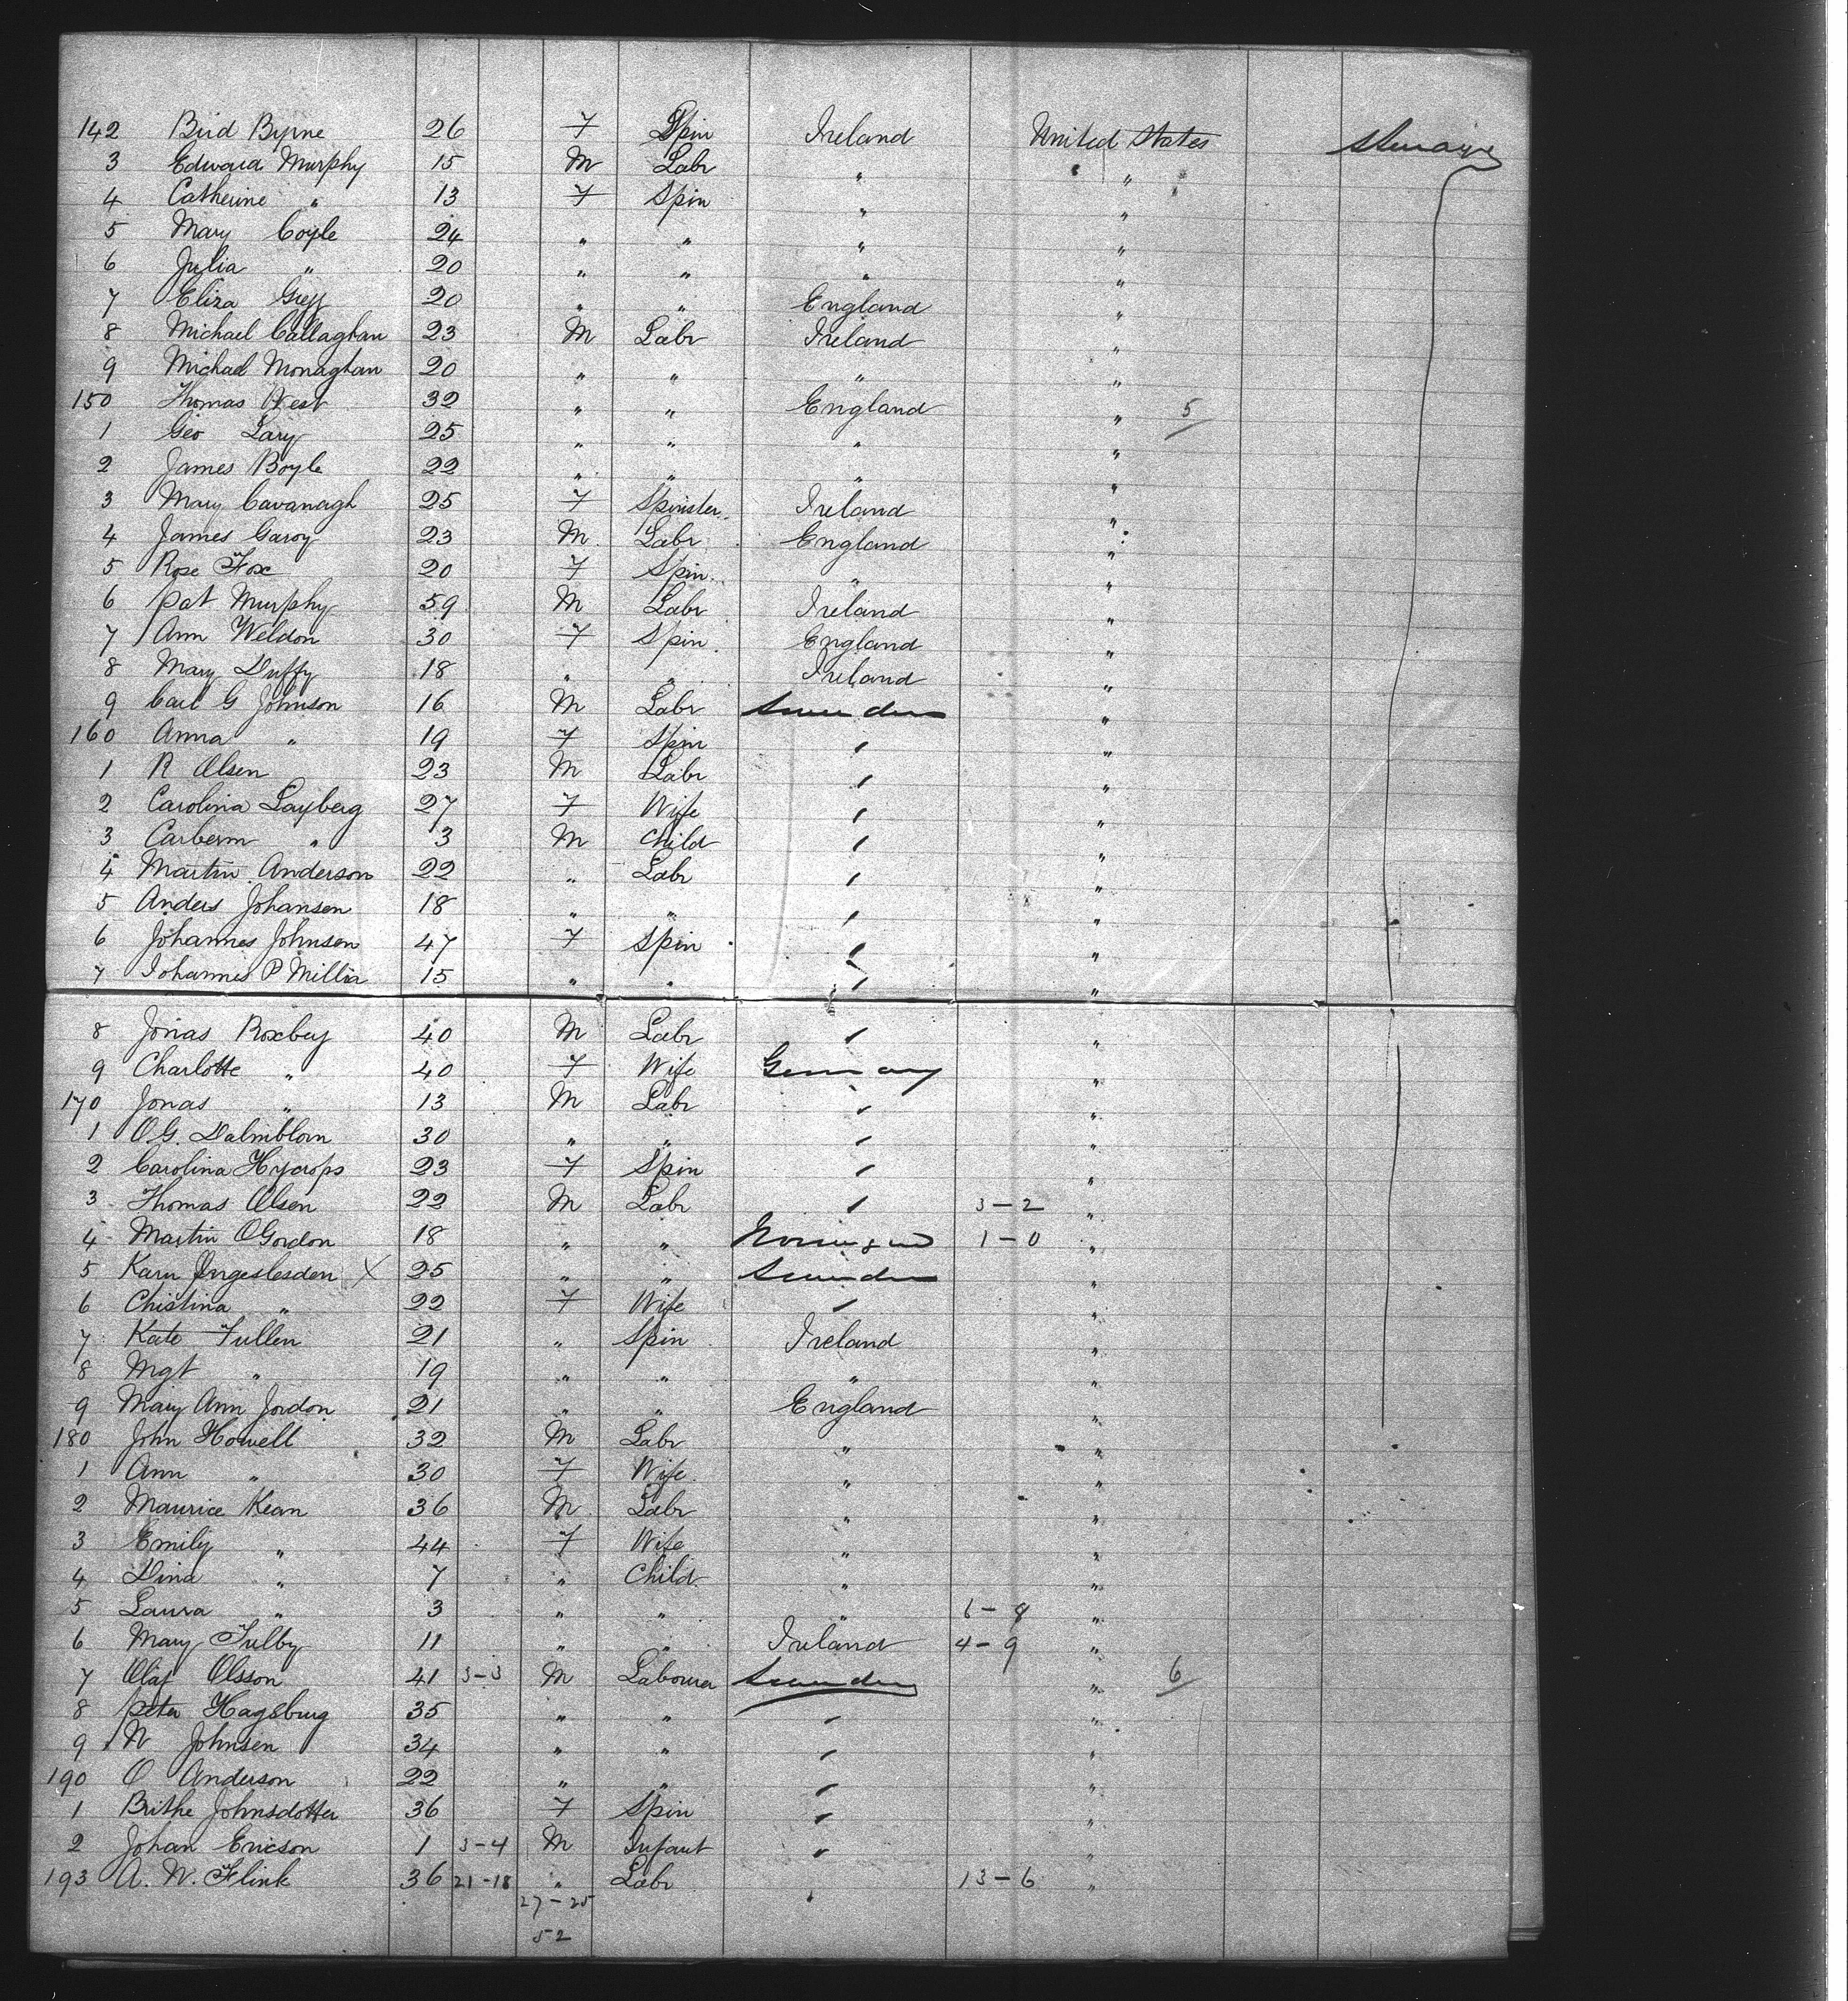 142 Bird Byrne 26 F Spin Ireland United States Steerage
3 Edward Murphy 15 M Labr " "
4 Catherine " 13 F Spin " "
5 Mary Coyle 24 " " " "
6 Julia " 20 " " " "
7 Eliza 20 " " England "
8 Michael Callaghan 23 M Labr Ireland "
9 Michael Monaghan 20 " " " "
150 Thomas West 32 " " England " 5
1 Geo Lary 25 " " " "
2 James Boyle 22 " " " "
3 Mary Cavanagh 25 F Spinster Ireland "
4 James Garoy 23 M Labr England "
5 Rose Fox 20 F Spin " "
6 Pat Murphy 59 M Labr Ireland "
7 Ann Weldon 30 F Spin England "
8 Mary Duffy 18 " " Ireland "
9 Carl G Johnson 16 M Labr Sweden "
160 Anna " 19 F Spin " "
1 R Olsen 23 M Labr " "
2 Carolina Layberg 27 F Wife " "
3 Carberm " 3 M Child " "
4 Martin Anderson 22 " Labr " "
5 Anders Johansen 18 " " " "
6 Johannes Johnson 47 F Spin " "
7 Johannes P Millia 15 " " " "
8 Jonas Roxbey 40 M Labr " "
9 Charlotte " 40 F Wife Germany "
170 Jonas " 13 M Labr " "
1 O.G. Dalmblom 30 " " " "
2 Carolina Hycrops 23 F Spin " "
3 Thomas Olsen 22 M Labr " 3-2 "
4 Martin OGordon 18 " " 1-0 "
5 Karn Ingeslesden X 25 " " Sweden "
6 Chistina " 22 F Wife " "
7 Kate Fullen 21 " Spin Ireland "
8 Mgt " 19 " " " "
9 Mary Ann Jordon 21 " " England "
180 John Howell 32 M Labr " "
1 Ann " 30 F Wife " "
2 Maurice Kean 36 M Labr " "
3 Emily " 44 F Wife " "
4 Dina " 7 " Child " "
5 Laura " 3 " " " 6-8 "
6 Mary Tulby 11 " " Ireland 4-9 "
7 Olaf Olsson 41 3-3 M Labourer Sweden " 6
8 Peter Hagsburg 35 " " " "
9 N Johnsen 34 " " " "
190 O Anderson 22 " " " "
1 Brithe Johnsdotter 36 F Spin " "
2 Johan Ericson 1 3-4 M Infant " "
193 A. W. Flink 36 21-18 " Labr " 13-6 "
27-25
52